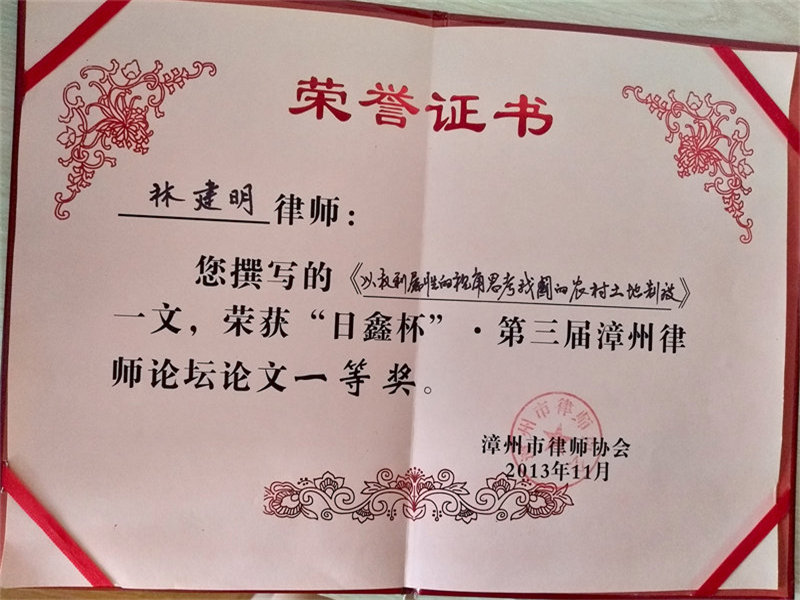 荣誉证书
林建明律师：
您撰写的《以权利属性的视角思考我国的农村土地制度》
一文，荣获“日鑫杯”·第三届漳州律
师论坛论文一等奖。
漳州市律师协会
2013年11月
州市律师